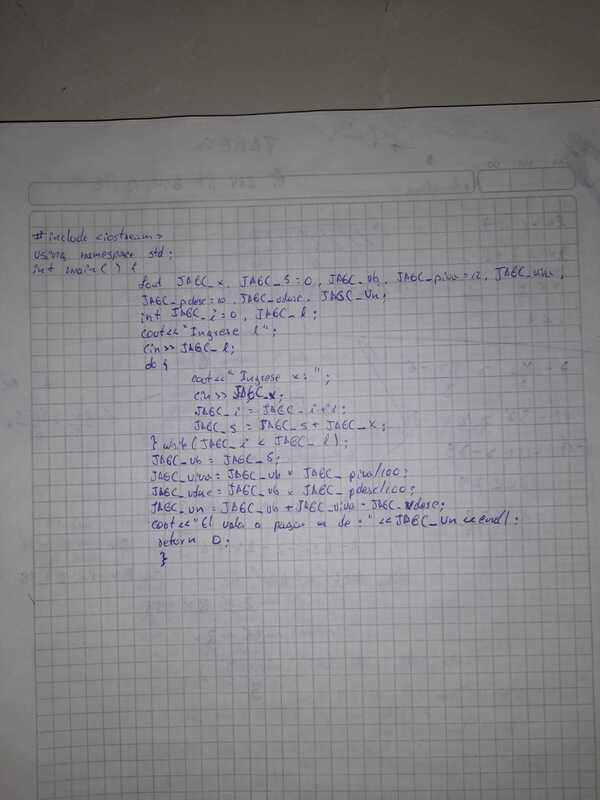 #include <iostream>
using namespace std;
int main() {
float JABC_x, JABC_S=0, JABC_vb, JABC_piva=12, JABC_viva,
JABC_pdesc=10, JABC_vdesc, JABC_Vn;
int JABC_i=0, JABC_l;
cout<<"Ingrese l";
cin>> JABC_l;
do {
cout<<"Ingrese x:";
cin>> JABC_x;
JABC_i = JABC_i+1;
JABC_S = JABC_S + JABC_x;
} while (JABC_i < JABC_l);
JABC_vb = JABC_S;
JABC_viva = JABC_vb * JABC_piva/100;
JABC_vdesc = JABC_vb * JABC_pdesc/100;
JABC_vn = JABC_vb + JABC_viva - JABC_vdesc;
cout<<"El valor a pagar es de:"<<JABC_Vn<<endl;
return 0;
}